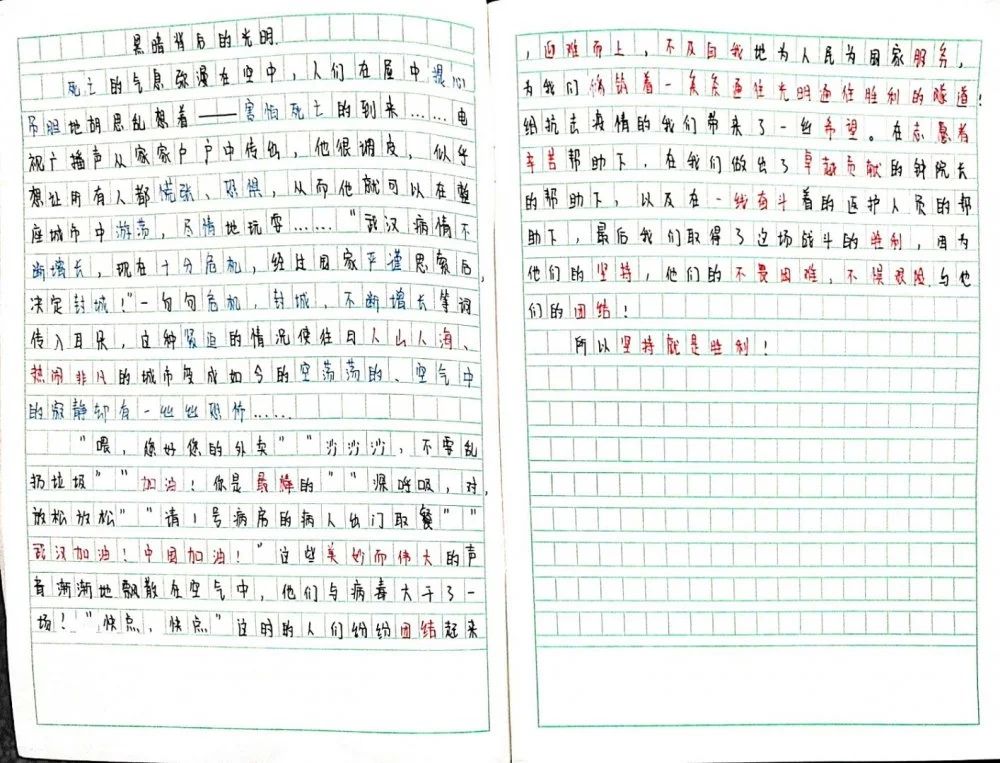 黑暗背后的光明
死亡的气息弥漫在空中，人们在屋中提心
吊胆地胡思乱想着——害怕死亡的到来……电
视广播声从家家户户中传出，他很调皮，似乎
想让所有人都慌张、恐惧，从而他就可以在整
座城市中游荡，尽情地玩耍……"武汉病情不
断增长，现在十分危机，经过国家严谨思索后，
决定封城！"一句句危机，封城，不断增长等词
传入耳朵，这种紧迫的情况使往日人山人海、
热闹非凡的城市变成如今的空荡荡的、空气中
的寂静却有一丝丝恐怖……
"喂，您好您的外卖""沙沙沙，不要乱
扔垃圾""加油！你是最棒的""深呼吸，对，
放松放松""请1号病房的病人出门取餐""
武汉加油！中国加油！"这些美妙而伟大的声
音渐渐地飘散在空气中，他们与病毒大干了一
场！"快点，快点"这时的人们纷纷团结起来
，迎难而上，不及自我地为人民为国家服务，
为我们铺着一条条通往光明通往胜利的隧道！
给抗击疫情的我们带来了一丝希望。在志愿者
辛苦帮助下，在我们做出了卓越贡献的钟院长
的帮助下，以及在一线奋斗着的医护人员的帮
助下，最后我们取得了这场战斗的胜利，因为
他们的坚持，他们的不畏困难，不惧艰险与他
们的团结！
所以坚持就是胜利！